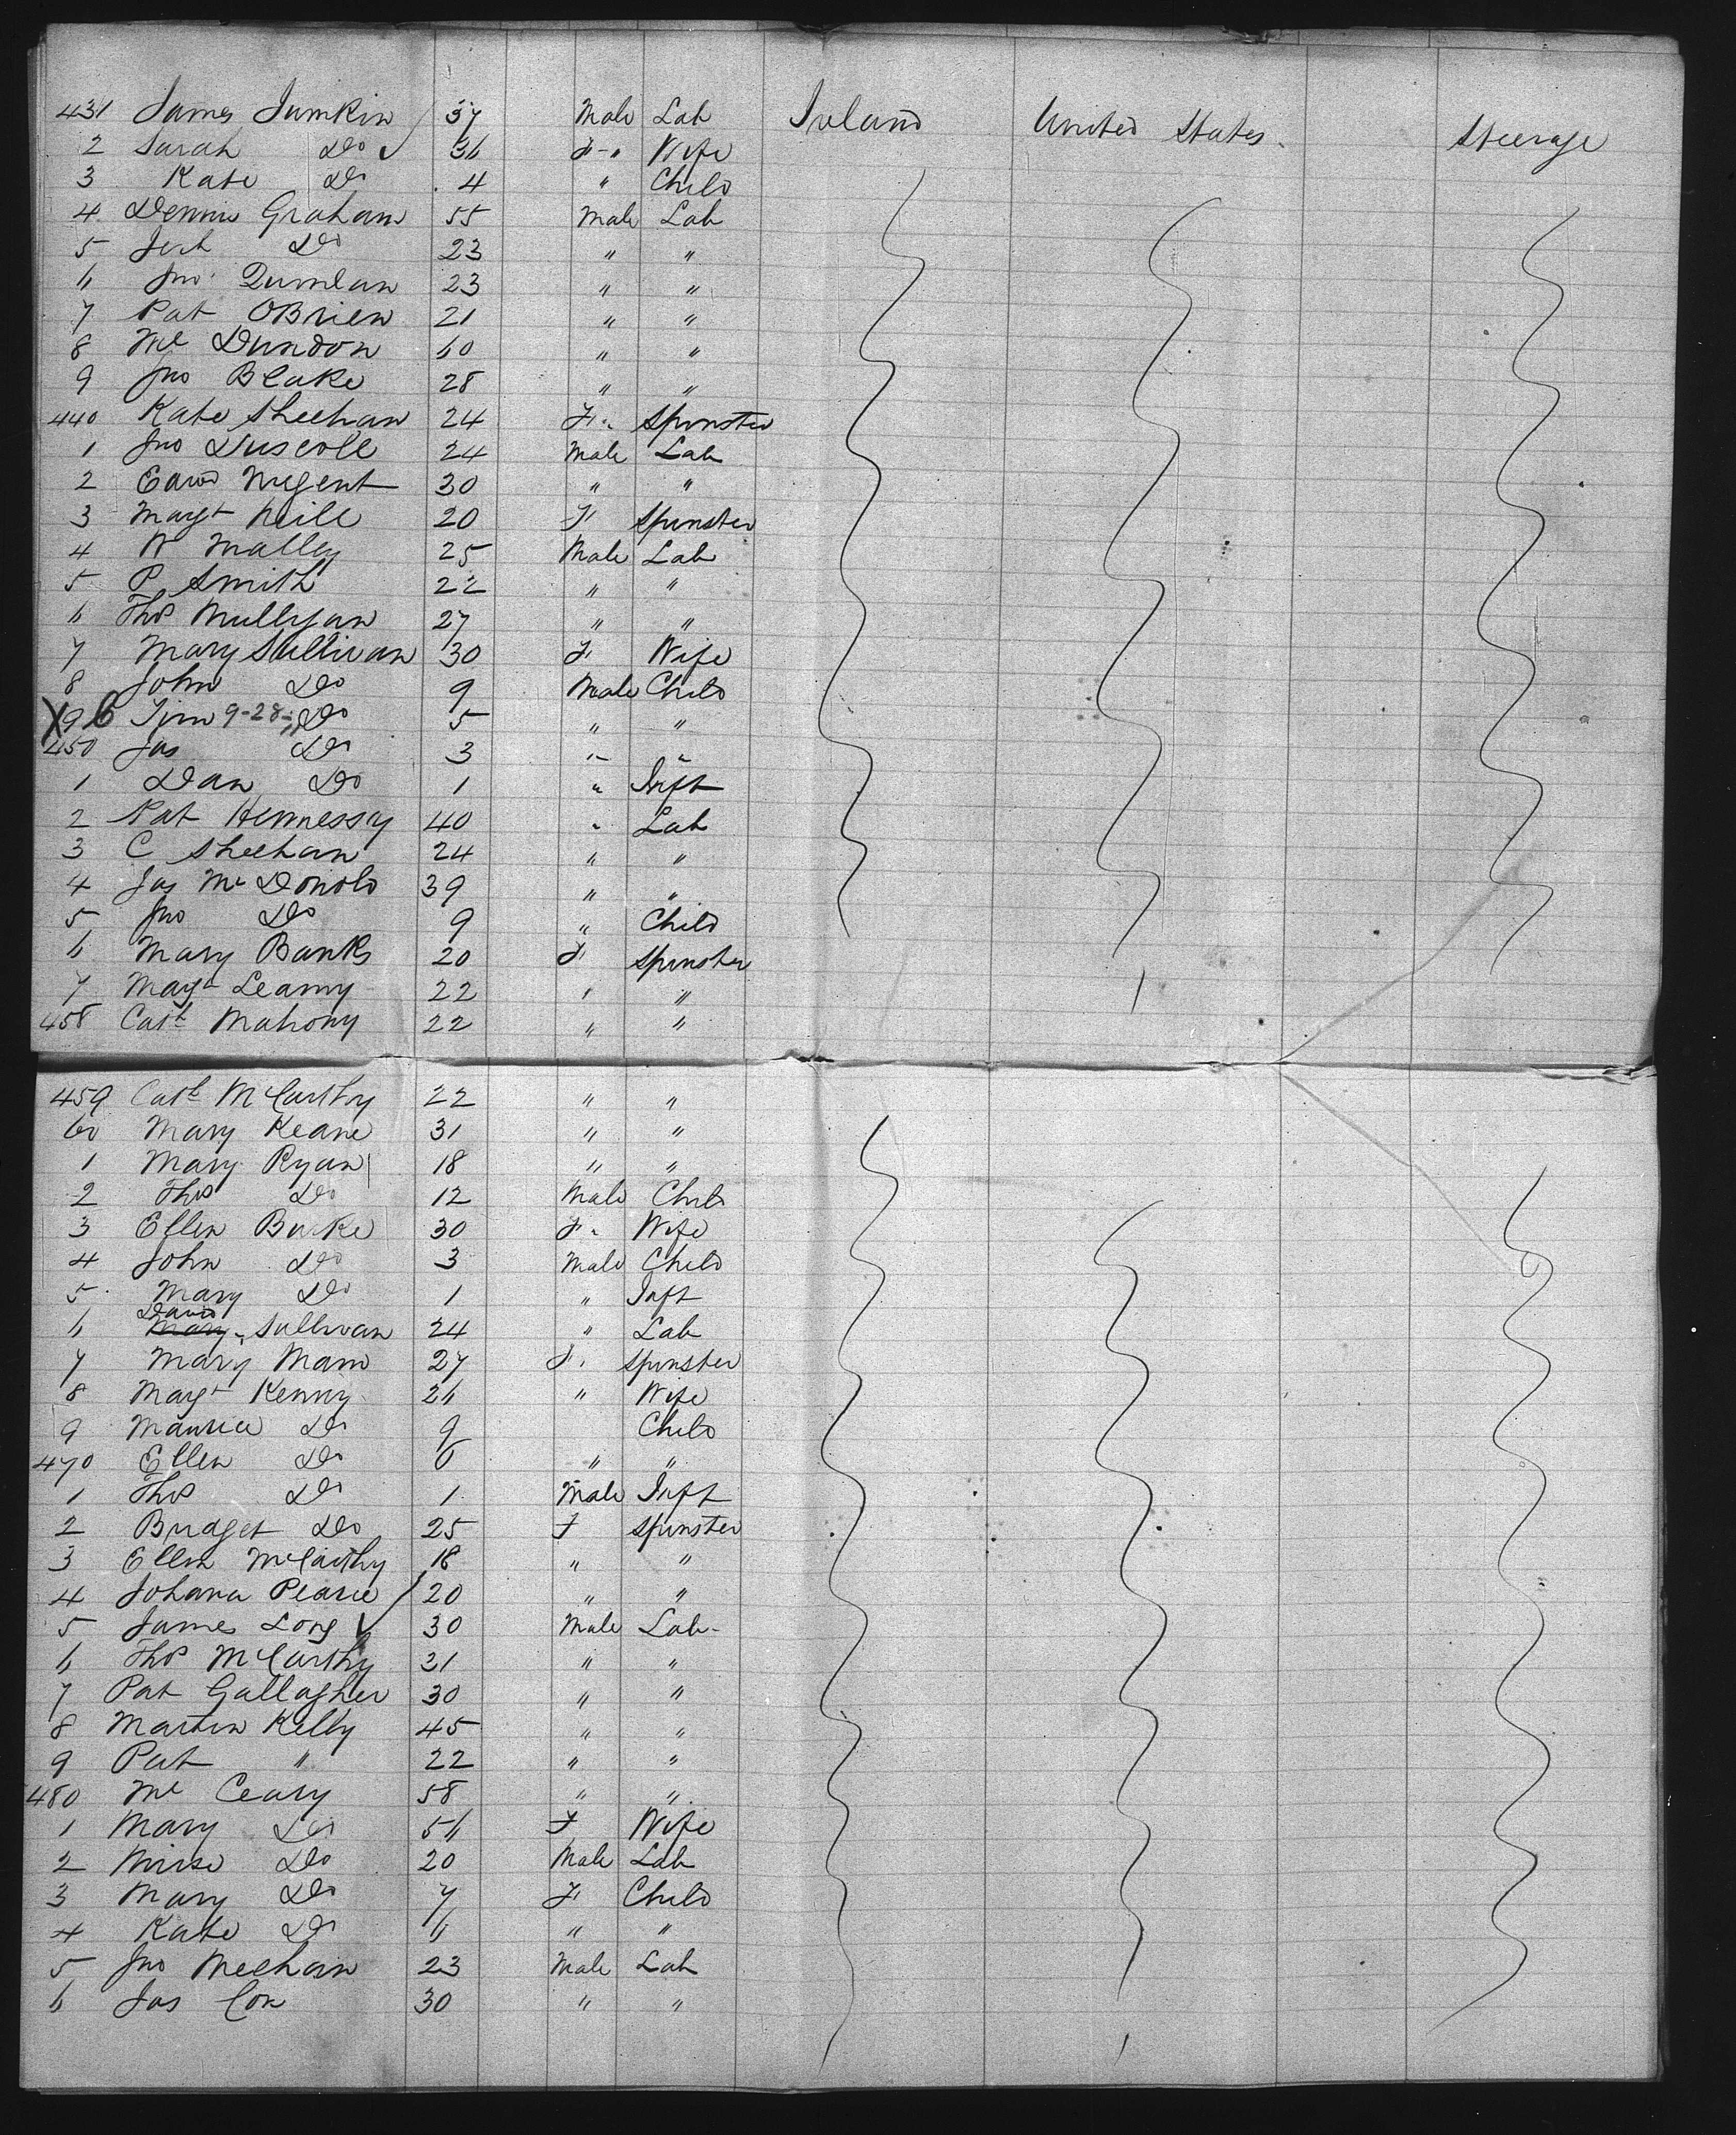 431 James Jumkin 37 Male Lab Ireland United States. Steerage
2 Sarah Do 36 F-" Wife
3 Kate Do 4 " Child
4 Dennis Graham 55 Male Lab
5 Do 23 " "
6 Jno Quinlan 23 " "
7 Pat OBrien 21 " "
8 Ml Dundon 60 " "
9 Jno Blake 28 " "
440 Kate Sheehan 24 F. Spinster
1 Jno Driscoll 24 Male Lab
2 Edwd Nugent 30 " "
3 Magt Neill 20 F Spinster
4 W Malley 25 Male Lab
5 P Smith 22 " "
6 Thos Mullygan 27 " "
7 Mary Sullivan 30 F Wife
8 John Do 9 Male Child
X 9 6 Tim 9-28- Do 5 " "
450 Jas Do 3 " "
1 Dan Do 1 " Inft
2 Pat Hennessy 40 " Lab
3 C Sheehan 24 " "
4 Jas McDonold 39 " "
5 Jno Do 9 " Child
6 Mary Banks 20 F Spinster
7 Magt Leamy 22 " "
458 Cath Mahony 22 " "
459 Cath McCarthy 22 " "
60 Mary Keane 31 " "
1 Mary Ryan 18 " "
2 Thos Do 12 Male Child
3 Ellen Burke 30 F. Wife
4 John Do 3 Male Child
5 Mary Do 1 " Inft
David
6 Mary Sullivan 24 " Lab
7 Mary Mam 27 F. Spinster
8 Magt Kenny 26 " Wife
9 Maurice Do 9 Child
470 Ellen Do 6 " "
1 Thos Do 1 Male Inft
2 Bridget Do 25 F Spinster
3 Ellen McCarthy 18 " "
4 Johana Pearce 20 " "
5 James Long 30 Male Lab-
6 Thos McCarthy 31 " "
7 Pat Gallagher 30 " "
8 Martin Kelly 45 " "
9 Pat " 22 " "
480 Ml Ceary 58 " "
1 Mary Do 56 F Wife
2 Do 20 Male Lab
3 Mary Do 7 F Child
4 Kate Do 6 " "
5 Jno Meehan 23 Male Lab
6 Jas Cox 30 " "